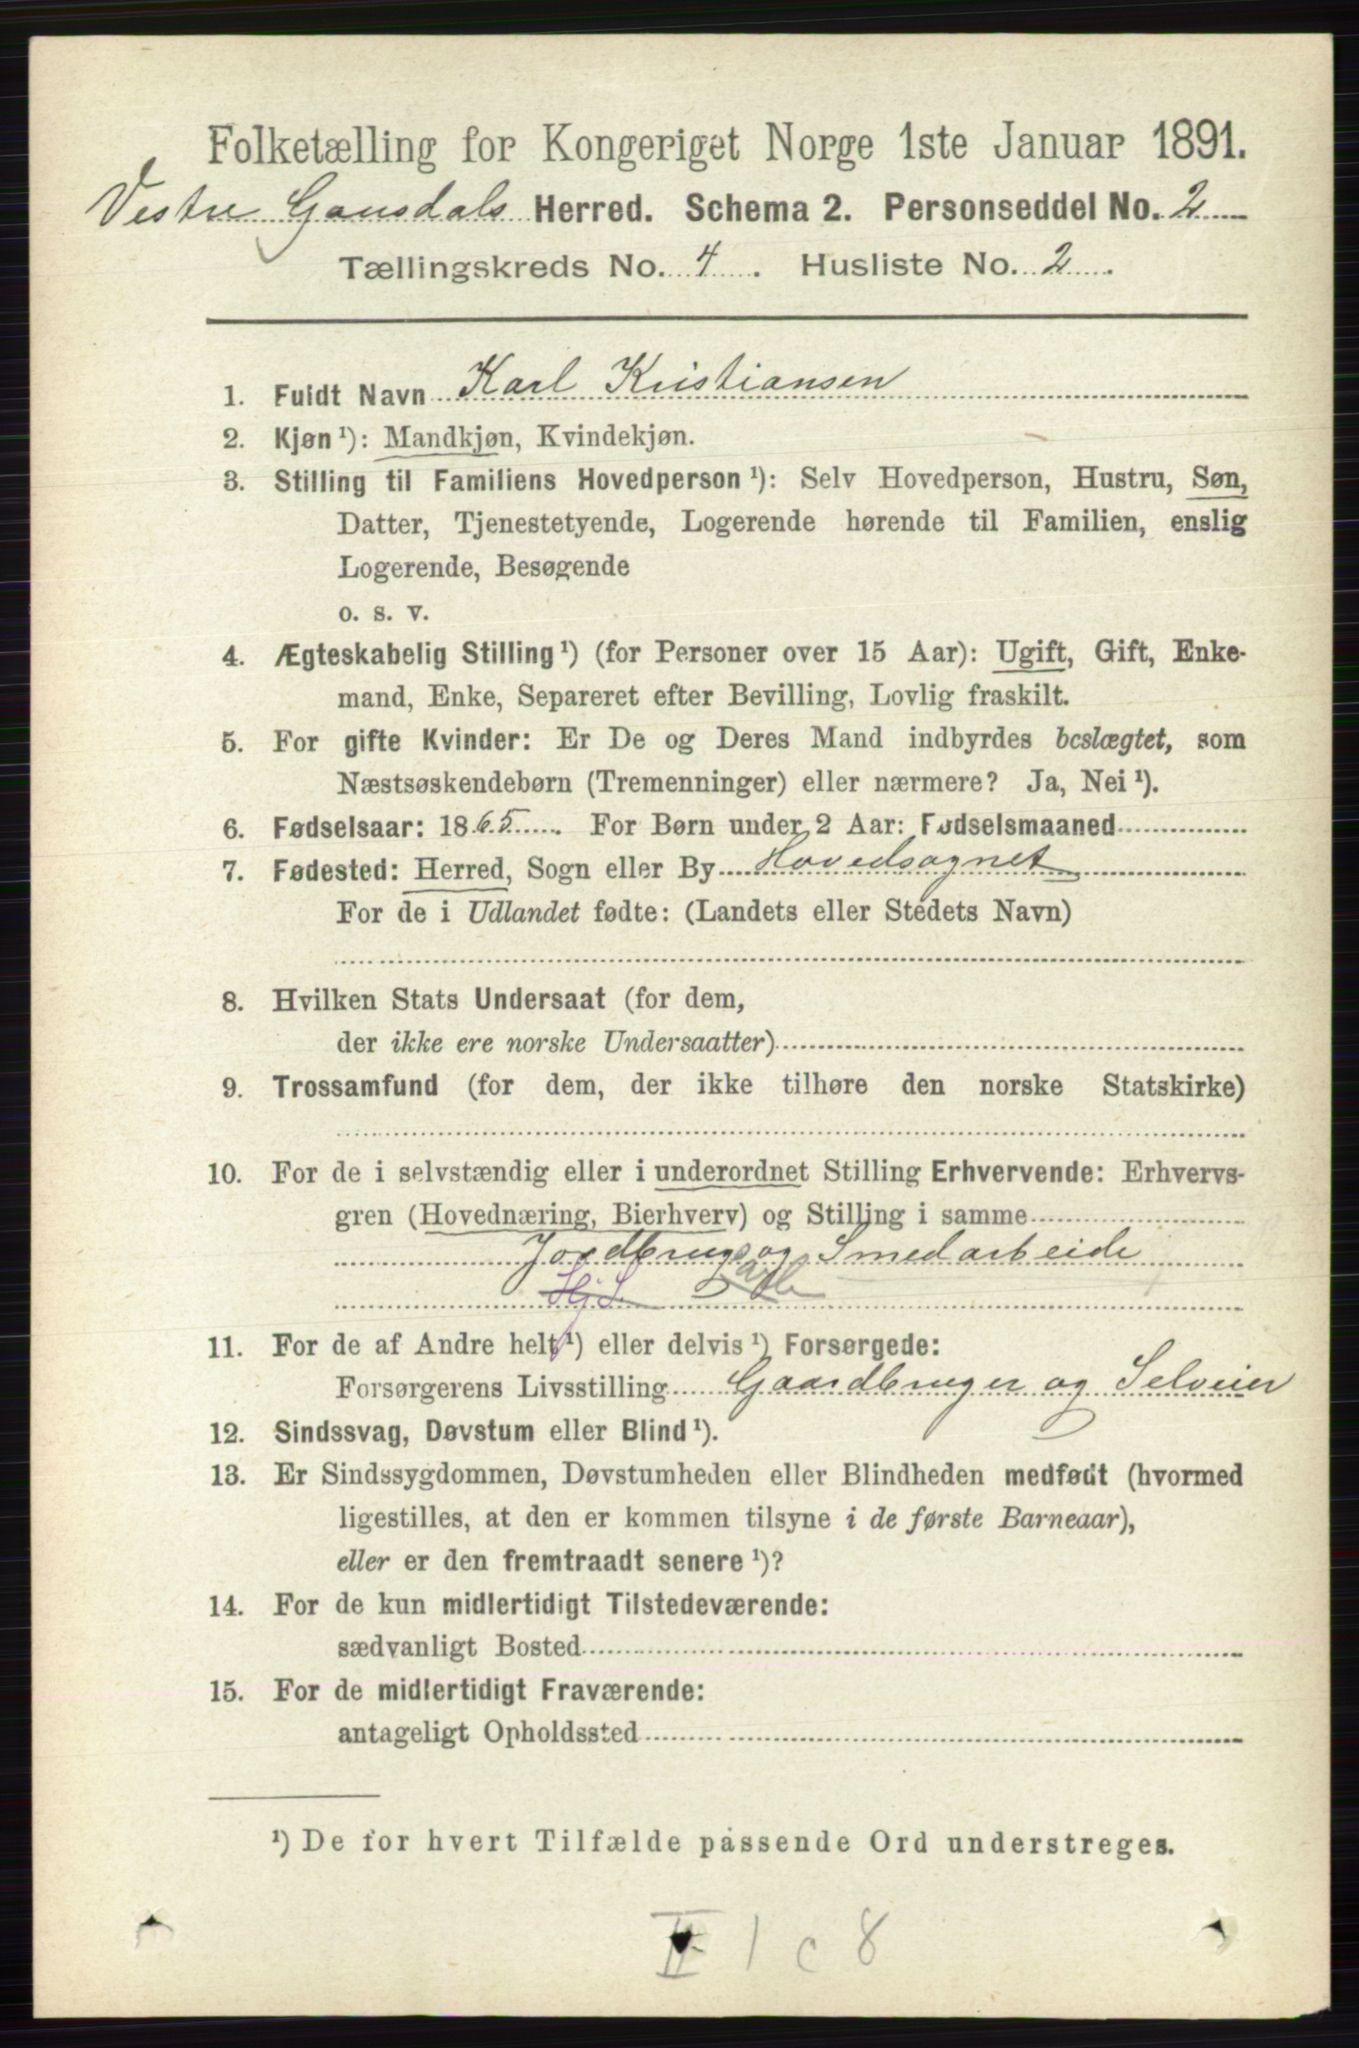 Folketælling for Kongeriget Norge 1ste Januar 1891.
Vestre Gausdals Herred. Schema 2. Personseddel No. 2
Tællingskreds No. 4. Husliste No. 2.
1. Fuldt Navn Karl Kristiansen
2. Kjøn ¹): Mandkjøn, Kvindekjøn.
3. Stilling til Familiens Hovedperson ¹): Selv Hovedperson, Hustru, Søn,
Datter, Tjenestetyende, Logerende hørende til Familien, enslig
Logerende, Besøgende
o. s. v.
4. Ægteskabelig Stilling ¹) (for Personer over 15 Aar): Ugift, Gift, Enke-
mand, Enke, Separeret efter Bevilling, Lovlig fraskilt.
5. For gifte Kvinder: Er De og Deres Mand indbyrdes beslægtet, som
Næstsøskendebørn (Tremenninger) eller nærmere? Ja, Nei ¹).
6. Fødselsaar: 1865. For Børn under 2 Aar: Fødselsmaaned
7. Fødested: Herred, Sogn eller By Hovedsognet
For de i Udlandet fødte: (Landets eller Stedets Navn)
8. Hvilken Stats Undersaat (for dem,
der ikke ere norske Undersaatter)
9. Trossamfund (for dem, der ikke tilhøre den norske Statskirke)
10. For de i selvstændig eller i underordnet Stilling Erhvervende: Erhvervs-
gren (Hovednæring, Bierhverv) og Stilling i samme
Jordbrugs og Smedarbeide
11. For de af Andre helt ¹) eller delvis ¹) Forsørgede:
Forsørgerens Livsstilling Gaardbruger og Selveier
12. Sindssvag, Døvstum eller Blind ¹).
13. Er Sindssygdommen, Døvstumheden eller Blindheden medfødt (hvormed
ligestilles, at den er kommen tilsyne i de første Barneaar),
eller er den fremtraadt senere ¹)?
14. For de kun midlertidigt Tilstedeværende:
sædvanligt Bosted
15. For de midlertidigt Fraværende:
antageligt Opholdssted
¹) De for hvert Tilfælde passende Ord understreges.
II 1 c 8